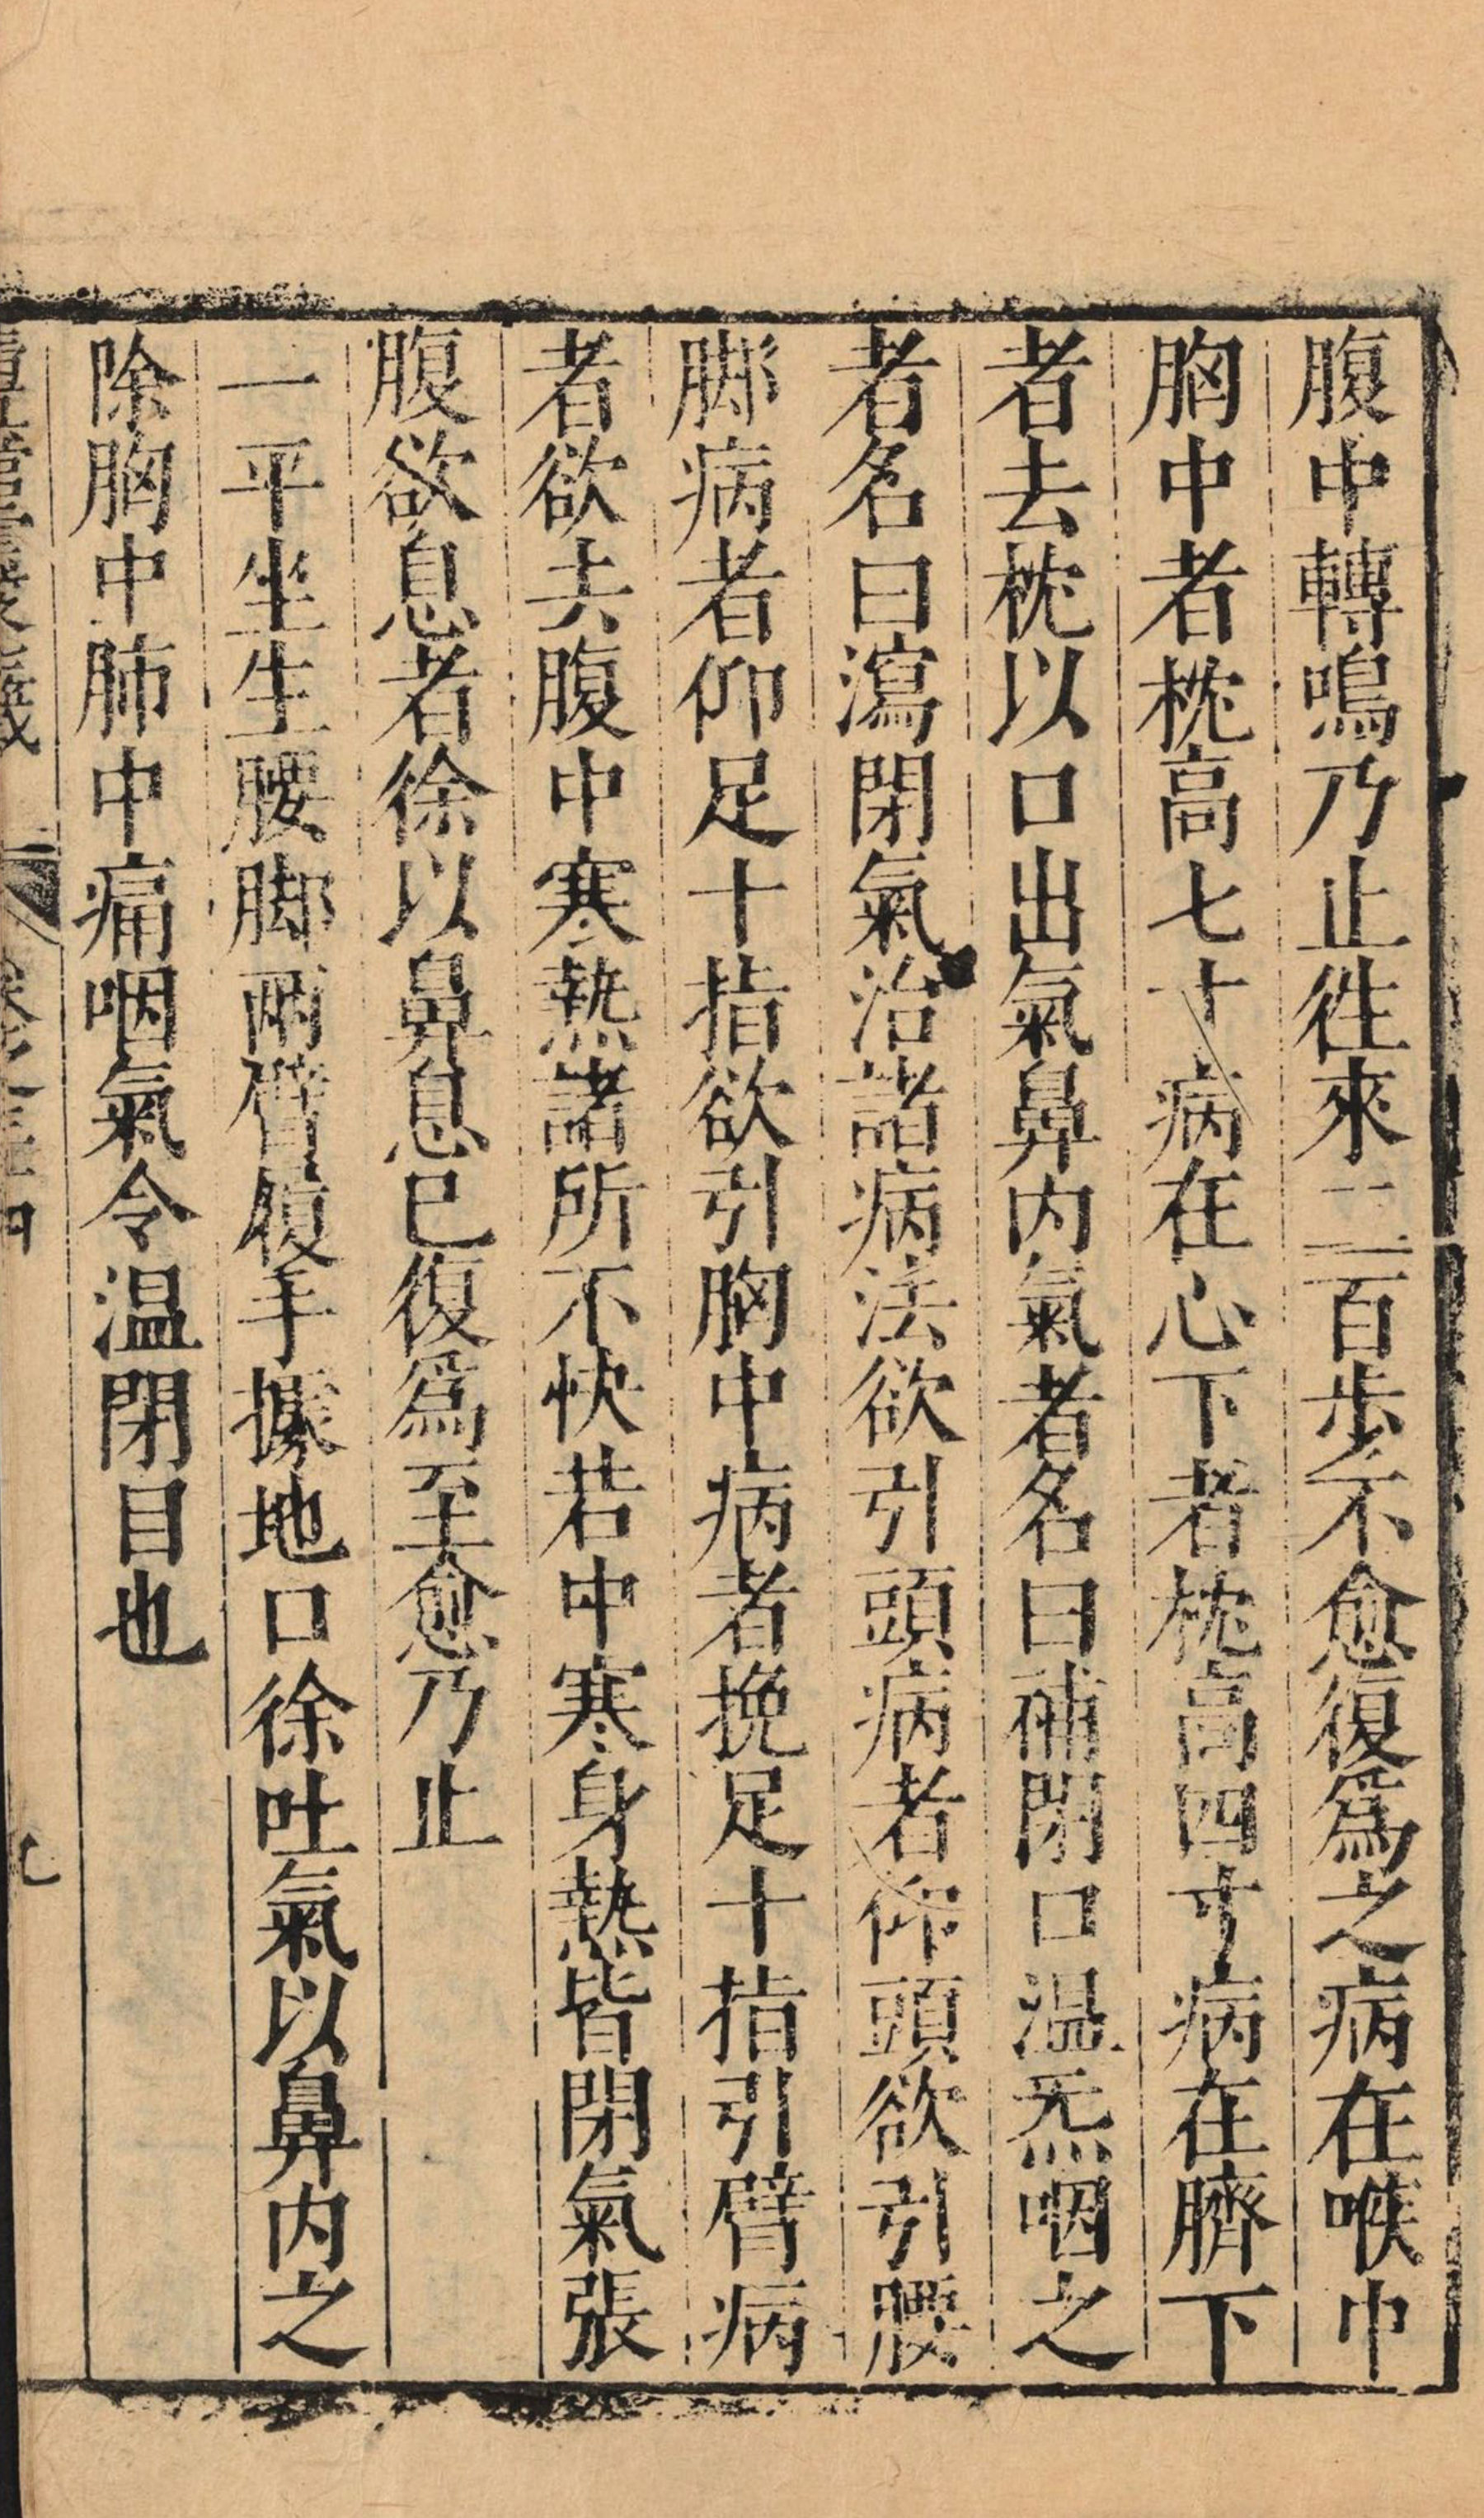 腹中轉鳴乃止徃來二百步不愈復爲之病在喉中
胸中者枕高七寸病在心下者枕高四寸病在臍下
者去枕以口出氣鼻内氣者名曰補閉口温炁咽之
者名曰瀉閉氣治諸病法欲引頭病者仰頭欲引腰
脚病者仰足十指欲引胸中病者挽足十指引臂病
者欲去腹中寒熱諸所不快若中寒身熱皆閉氣張
腹欲息者徐以鼻息已復爲至愈乃止
一平坐生腰脚兩臂覆手據地口徐吐氣以鼻内之
除胸中肺中痛咽氣令温閉目也